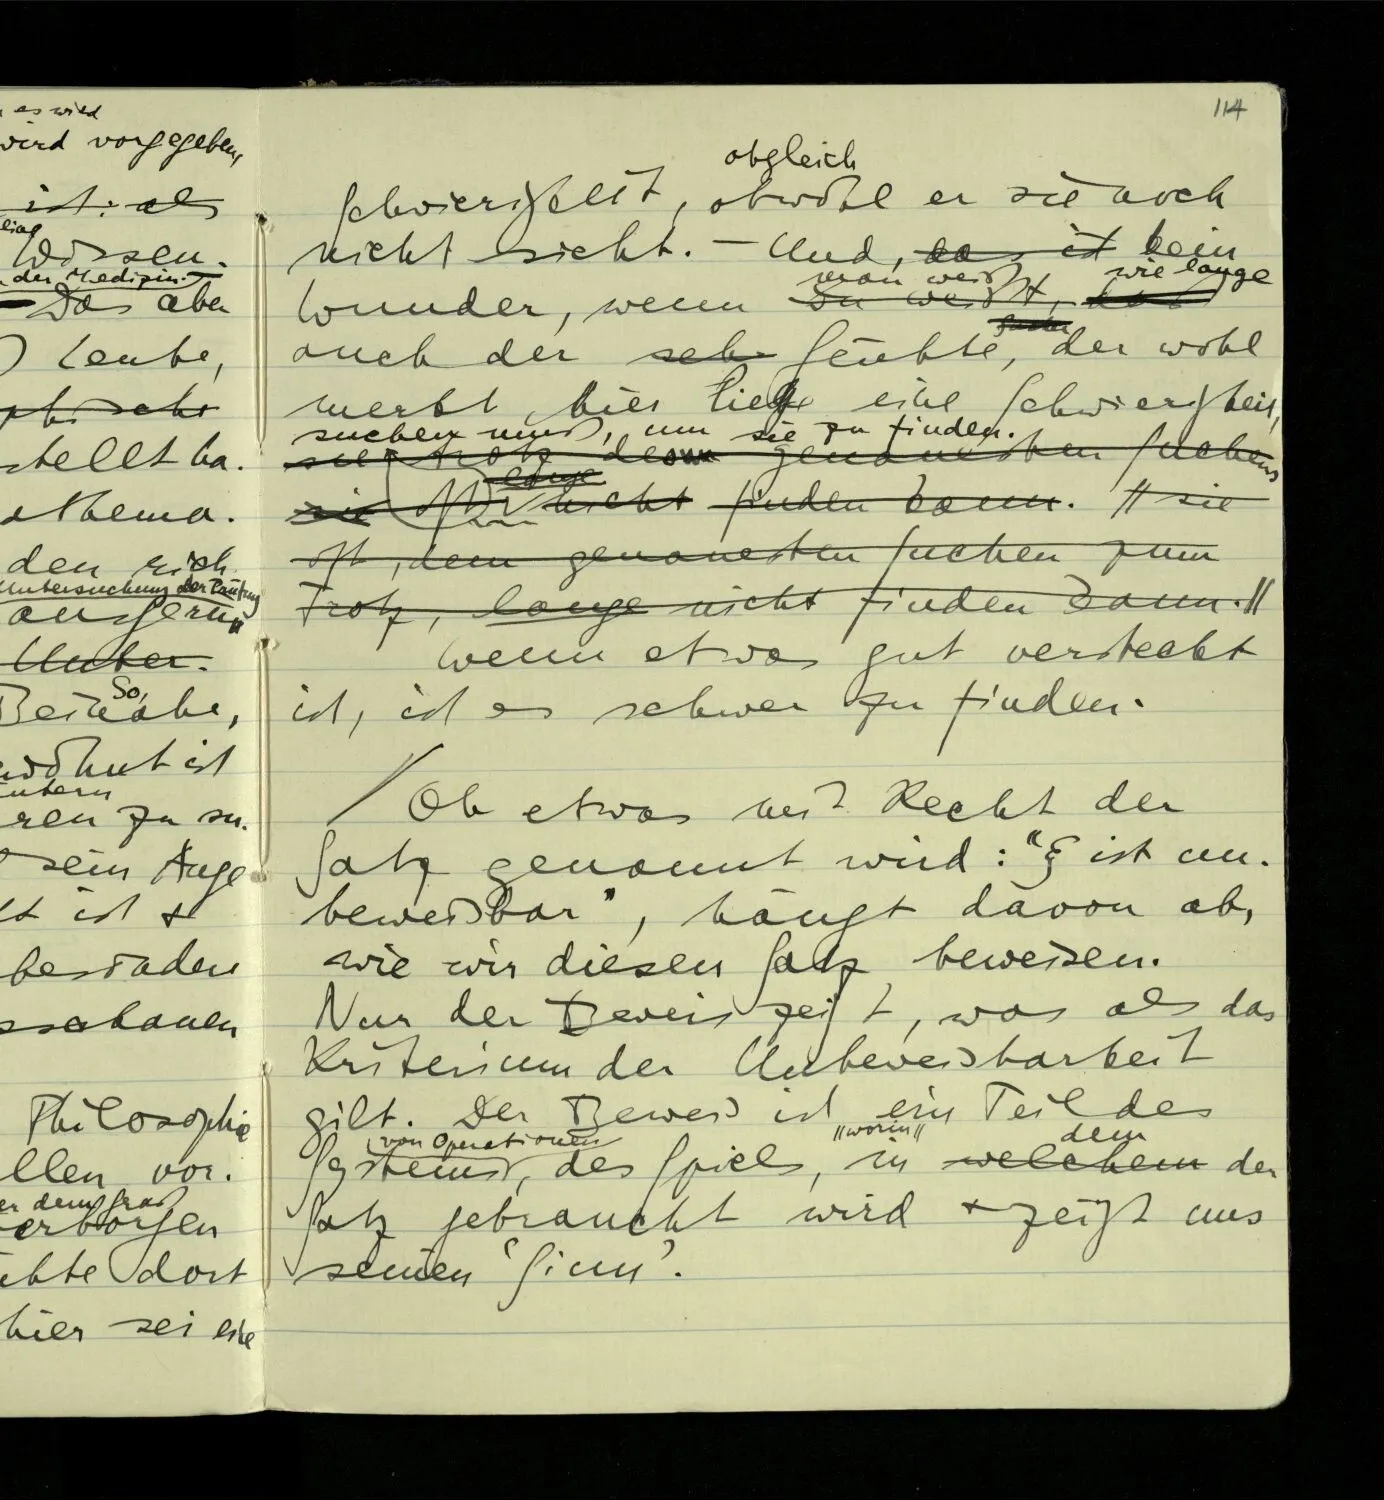 es wird
wird vorgegeben,
ist: als
Wissen.
der Medizin
Das aber
Leute,
stellt ha-
Mathema-
den sich
Untersuchung der Haut
äussern
Unter-
So,
Beinahe,
gewöhnt ist
ren zu su-
sein Auge
ist &
bestaden
schauen
Philosophie
llen vor.
verborgen
übte dort
hier sei eine
114
obgleich
Schwierigkeit, obwohl er sie noch
nicht sieht. – Und, das ist kein
man weiß wie lange
Wunder, wenn Du weißt, daß
auch der seh Geübte, der wohl
merkt, hier liege eine Schwierigkeit,
suchen muß, um sie zu finden.
sie trotz dem genauesten Suchens
lange
sie oft nicht finden kann. // sie
oft, dem genauesten Suchen zum
Trotz, lange nicht finden kann. //
Wenn etwas gut versteckt
ist, ist es schwer zu finden.
/ Ob etwas mit Recht der
Satz genannt wird: "ξ ist un-
beweisbar", hängt davon ab,
wie wir diesen Satz beweisen.
Nur der Beweis zeigt, was als das
Kriterium der Unbeweisbarkeit
gilt. Der Beweis ist ein Teil des
von Operationen //worin// dem
Systems, des Spiels, in welchem der
Satz gebraucht wird & zeigt uns
seinen 'Sinn'.